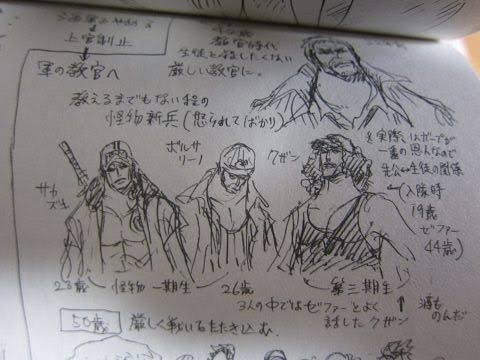 海軍をやめる
↓
上官制止
↓
軍の教官へ
教官時代
生徒を殺したくない
厳しい教官に。
教えるまでもない程の
怪物新兵(怒られてばかり)
サカズキ
ボルサリーノ
クザン
実際はガープが
一番の恩人なので
先公↔生徒の関係
(入隊時
19歳
ゼファー
44歳)
23歳
怪物一期生
26歳
第三期生
↑
酒も
のんだ
3人の中ではゼファーとよく
話したクザン
50歳 厳しく戦いをたたき込む。